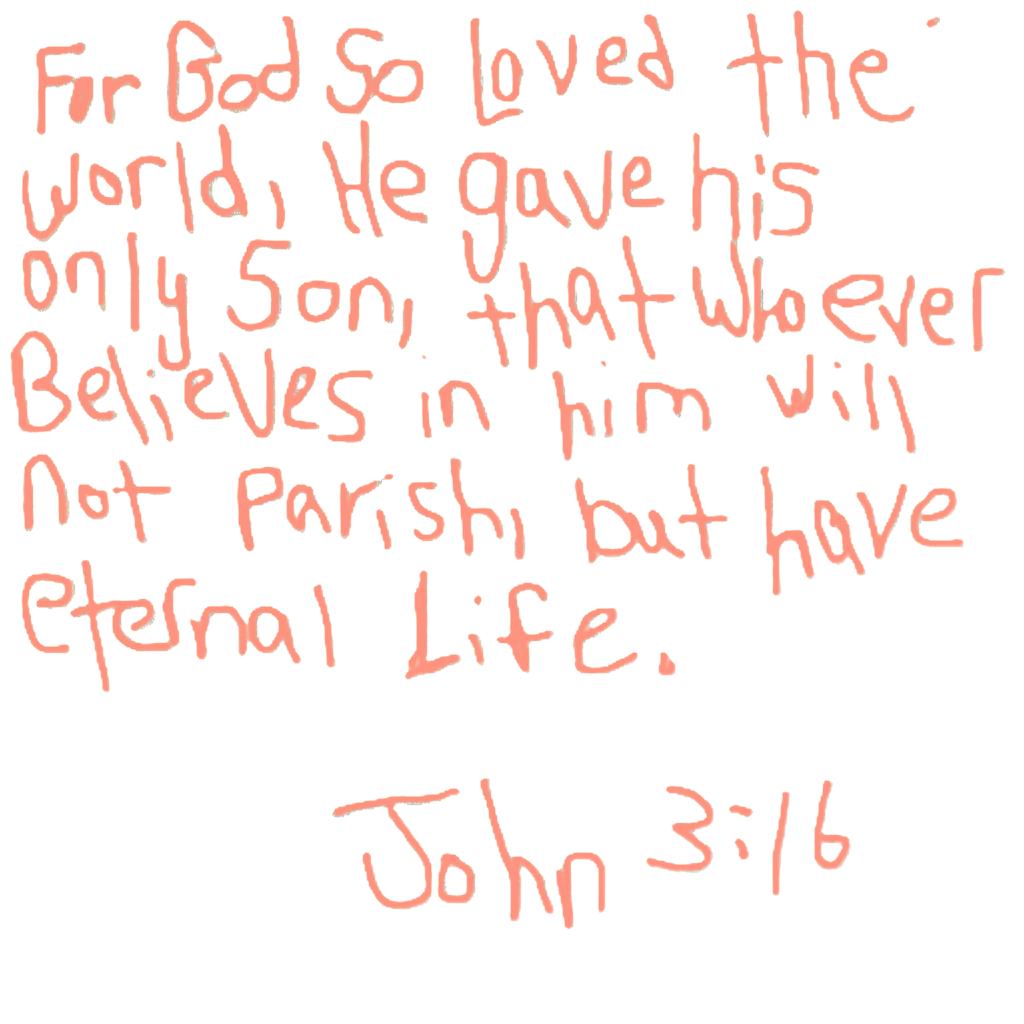 For God So Loved the
world, He gave his
only Son, that whoever
Believes in him will
not Parish, but have
eternal Life.
John 3:16